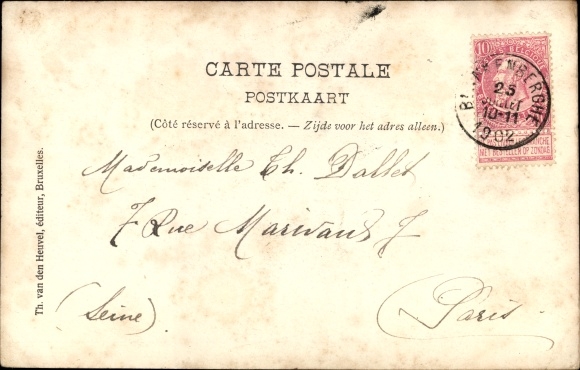 CARTE POSTALE
POSTKAART
(Côté réservé à l'adresse. — Zijde voor het adres alleen.)
10
BLANKENBERGHE
25
JUILLET
10-11
1902
NIET BESTELLEN OP ZONDAG
Mademoiselle Th. Dallet
7 Rue Marivaux 7
Paris
(Seine)
Th. van den Heuvel, éditeur, Bruxelles.